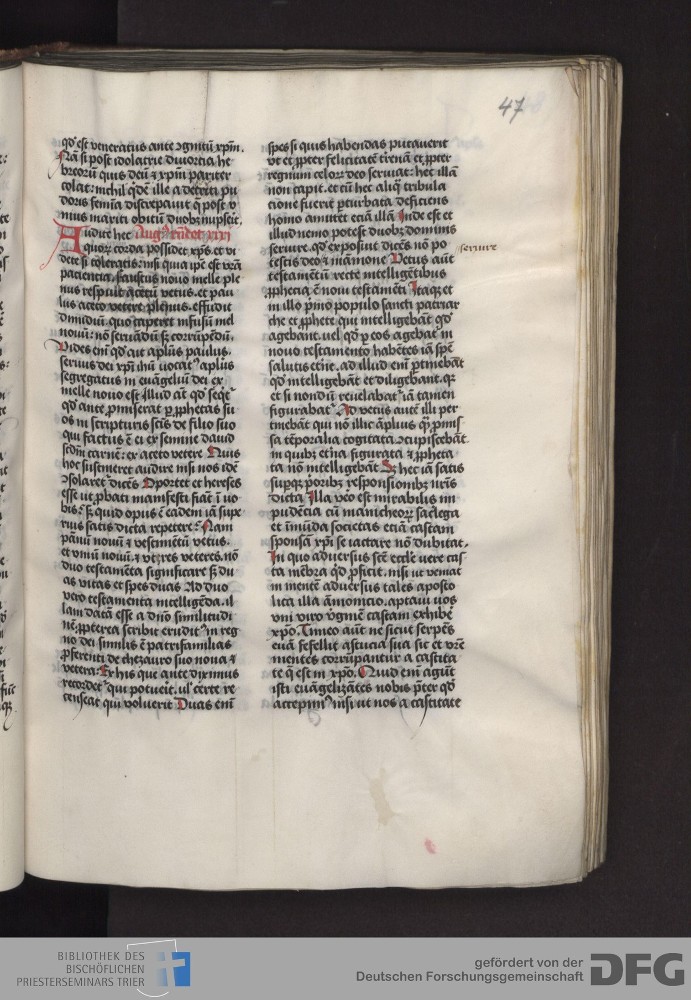 47
qd̄ est veneratus ante ꝯgnitū xp̄m.
Nā si post idolatrie diuortia he
breorū quis deū ⁊ xp̄m pariter
colat: nichil q̇dē ille a detriti pu
doris femīa discrepauit q̄ post v
nius mariti obitū duobꝫ nupserit.
Audite hec Augꝰ rn̄det xxxi
quoꝝ corda possidet xp̄s. et vi
dete si toleratis: nisi quia ipē est vr̄a
paciencia. faustus nouo melle ple
nus respuit acetū vetus. et pau
lus aceto vetere plenus. effudit
dimidiū. quo caperet infusū mel
nouū: nō seruādū sꝫ corrūpēdū.
Vides enī qd̄ ait aplūs paulus.
seruus dei xp̄i ihū uocatꝰ aplūs
segregatus in euāgeliū dei ex
melle nouo est. Illud āt qd̄ seq̄t᷑
qd̄ ante ꝓmiserat ꝑ ꝓphetas su
os in scripturis sctīs de filio suo
qui factus ē ei ex semine dauid
scdm̄ carnē: ex aceto vetere Quis
hoc sustineret audire nisi nos idē
ꝯsolaret᷑ dicēs Oportet et hereses
esse ut ꝓbati manifesti fiāt ī uo
bis: sꝫ quid opus ē eadem iā supe
rius satis dicta repetere: Nam
pānū nouū ⁊ vestimētū vetus.
et vinū nouū ⁊ vtres veteres. nō
duo testamēta significare sꝫ du
as vitas et spes duas Ad duo
vero testamenta intelligēda. il
lam datā esse a dn̄o similitudi
nē: ꝓpterea scriba eruditꝰ in reg
no dei similis ē patrifamilias
ꝓferenti de thezauro suo noua ⁊
vetera: Ex his que ante diximus
recordet᷑ qui potuerit. ul᷑ certe re
censeat qui voluerit Duas enī
spes si quis habendas putauerit
vt et ꝓpter felicitatē t̄renā et ꝓpter
regnum celoꝝ deo seruiat: hec illā
non capit. et cū hec aliq̄ tribula
cione fuerit ꝑturbata deficiens
homo amittet etiā illā. Inde est et
illud nemo potest duobꝫ dominis
seruire. qd̄ exposuit dicēs nō po
seruire
testis deo ⁊ māmone Vetus aūt
testamētū recte intelligētibus
ꝓphecia ē noui testamēti Itaqꝫ et
in illo p̄mo populo sancti patriar
che et ꝓphete qui intelligebāt qd̄
agebant. uel qd̄ ꝑ eos agebat᷑ in
nouo testamento habētes iā spē
salutis et̄ne. ad illud enī ꝑtinebāt
qd̄ intelligebāt et diligebant. qꝛ
et si nondū reuelabat᷑ iā tamen
figurabat᷑ Ad vetus autē illi per
tinebāt qui nō illic āplius q̄ꝫ ꝓmis
sa tēporalia cogitata ꝯcupiscebāt
in quibꝫ et̄na figurata ⁊ ꝓpheta
ta nō intelligebāt Sꝫ hec iā satis
supqꝫ prioribꝫ responsionibꝫ nr̄is
dicta Illa vero est mirabilis im
pudēcia cū manicheoꝝ sac̄lega
et īmūda societas etiā castam
sponsā xp̄i se iactare nō dubitat.
In quo aduersus scīe eccl̄ie vere cas
ta mēbra qd̄ ꝓficit. nisi ut veniat
in mentē aduersus tales aposto
lica illa āmonicio. aptaui uos
uni viro v̓ginē castam exhibē
xp̄o. Timeo aūt ne sicut serpēs
euā fefellit astucia sua sic et vr̄e
mentes corrūpantur a castita
te q̄ est in xp̄o. Quid em̄ agūt
isti euāgelizātes nobis p̄ter qd̄
accepimꝰ nisi ut nos a castitate
BIBLIOTHEK DES
BISCHÖFLICHEN
PRIESTERSEMINARS TRIER
gefördert von der
Deutschen Forschungsgemeinschaft
DFG